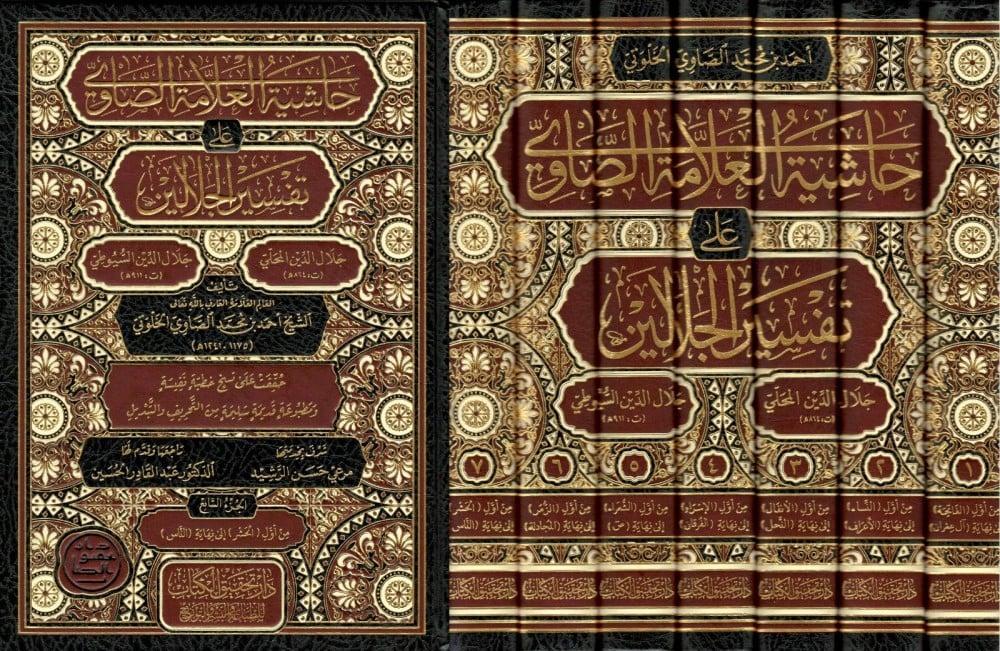 حاشية العلامة الصاوي
على
تفسير الجلالين
جلال الدين المحلي
(ت:٨٦٤هـ)
جلال الدين السيوطي
(ت:٩١١هـ)
تأليف
العالم العلامة العارف بالله تعالى
الشيخ أحمد بن محمد الصاوي الخلوتي
(١١٧٥-١٢٤١هـ)
حققت على نسخ خطية نفيسة
ومطبوعة قديمة سليمة من التحريف والتبديل
راجعها وقدم لها
الدكتور عبد القادر الحسين
مرعي حسن الرشيد
الجزء السابع
من أول (الحشر) إلى نهاية (الناس)
دار تحقيق الكتاب
للطباعة والنشر والتوزيع
أحمد بن محمد الصاوي الخلوتي
حاشية العلامة الصاوي
على
تفسير الجلالين
جلال الدين المحلي
(ت:٨٦٤هـ)
جلال الدين السيوطي
(ت:٩١١هـ)
١ ٢ ٣ ٤ ٥ ٦ ٧
من أول (الفاتحة)
إلى نهاية (آل عمران)
من أول (النساء)
إلى نهاية (الأعراف)
من أول (الأنفال)
إلى نهاية (النحل)
من أول (الإسراء)
إلى نهاية (الفرقان)
من أول (الشعراء)
إلى نهاية (ص)
من أول (الزمر)
إلى نهاية (المجادلة)
من أول (الحشر)
إلى نهاية (الناس)
دار تحقيق الكتاب
دار تحقيق الكتاب
دار تحقيق الكتاب
دار تحقيق الكتاب
دار تحقيق الكتاب
دار تحقيق الكتاب
دار تحقيق الكتاب